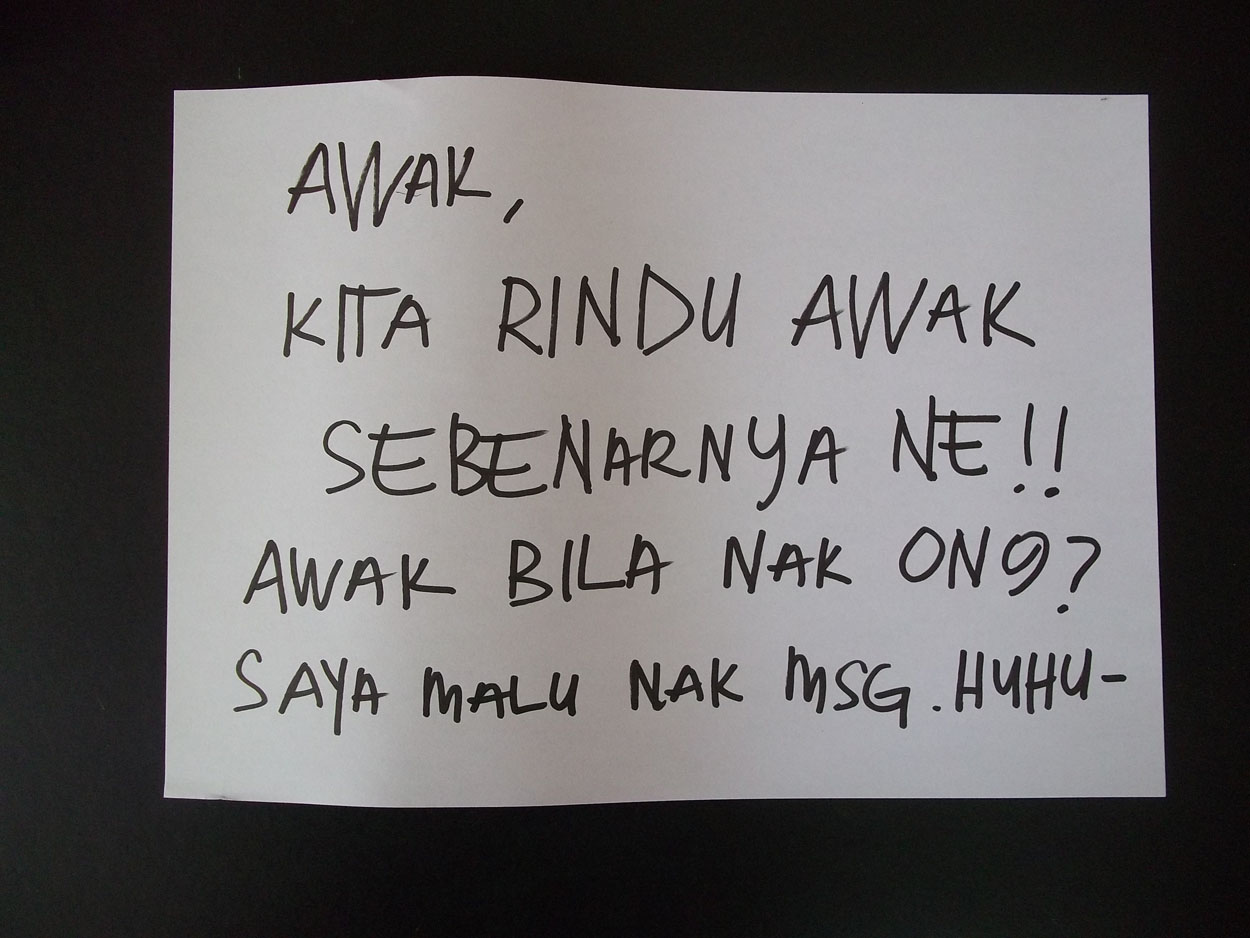 AWAK,
KITA RINDU AWAK
SEBENARNYA NE!!
AWAK BILA NAK ON9?
SAYA MALU NAK MSG. HUHU-